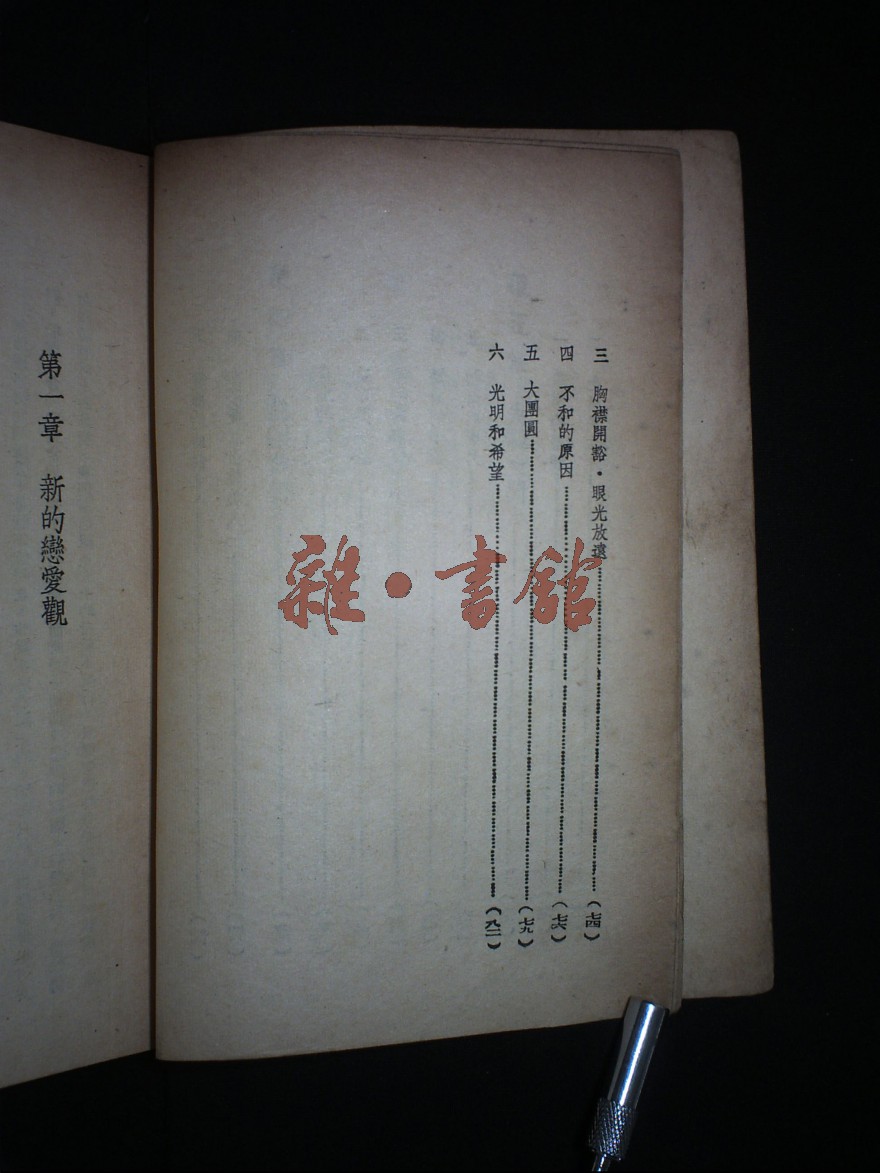 三 胸襟開豁・眼光放遠……(七四)
四 不和的原因……(七六)
五 大團圓……(七九)
六 光明和希望……(八二)
第一章 新的戀愛觀
雜・書館